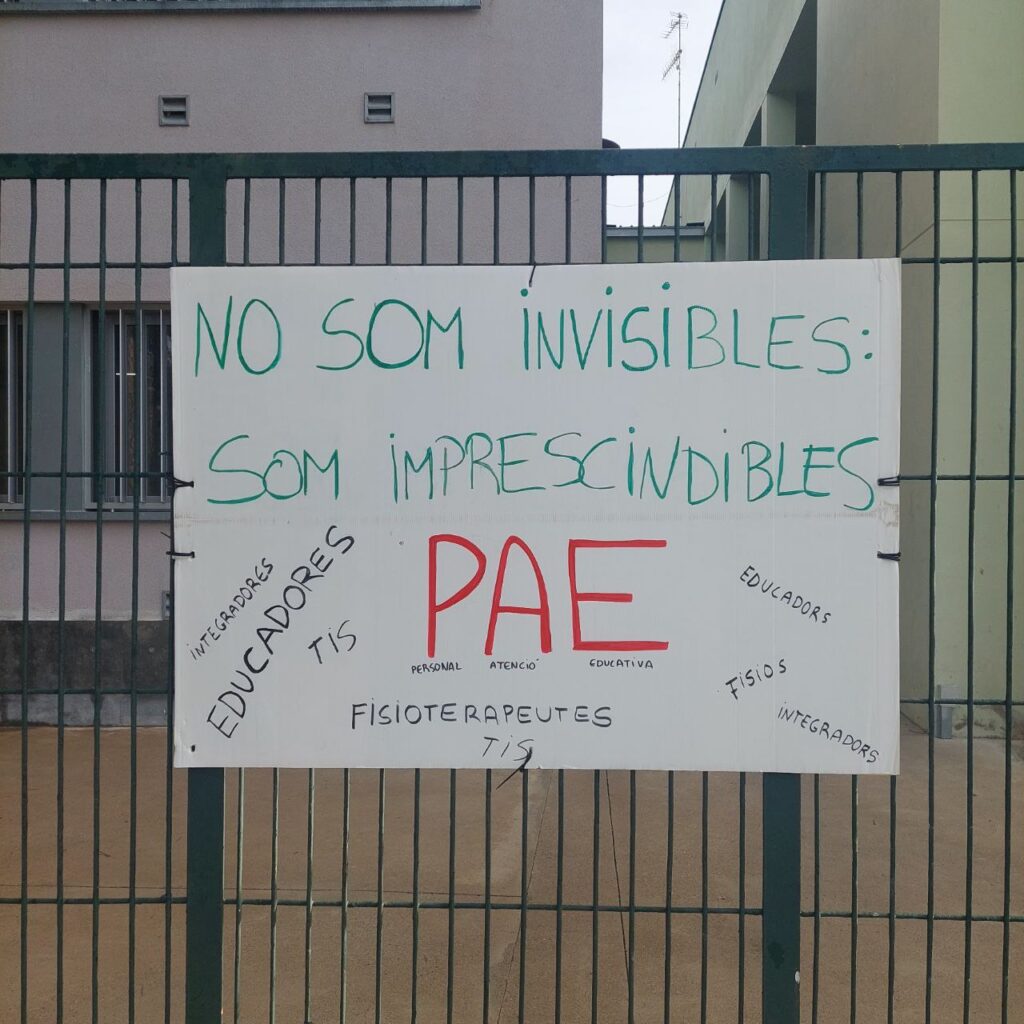 NO SOM INVISIBLES:
SOM IMPRESCINDIBLES
PAE
PERSONAL ATENCIÓ EDUCATIVA
INTEGRADORES
EDUCADORES
TIS
EDUCADORS
FISIOS
INTEGRADORS
FISIOTERAPEUTES
TIS